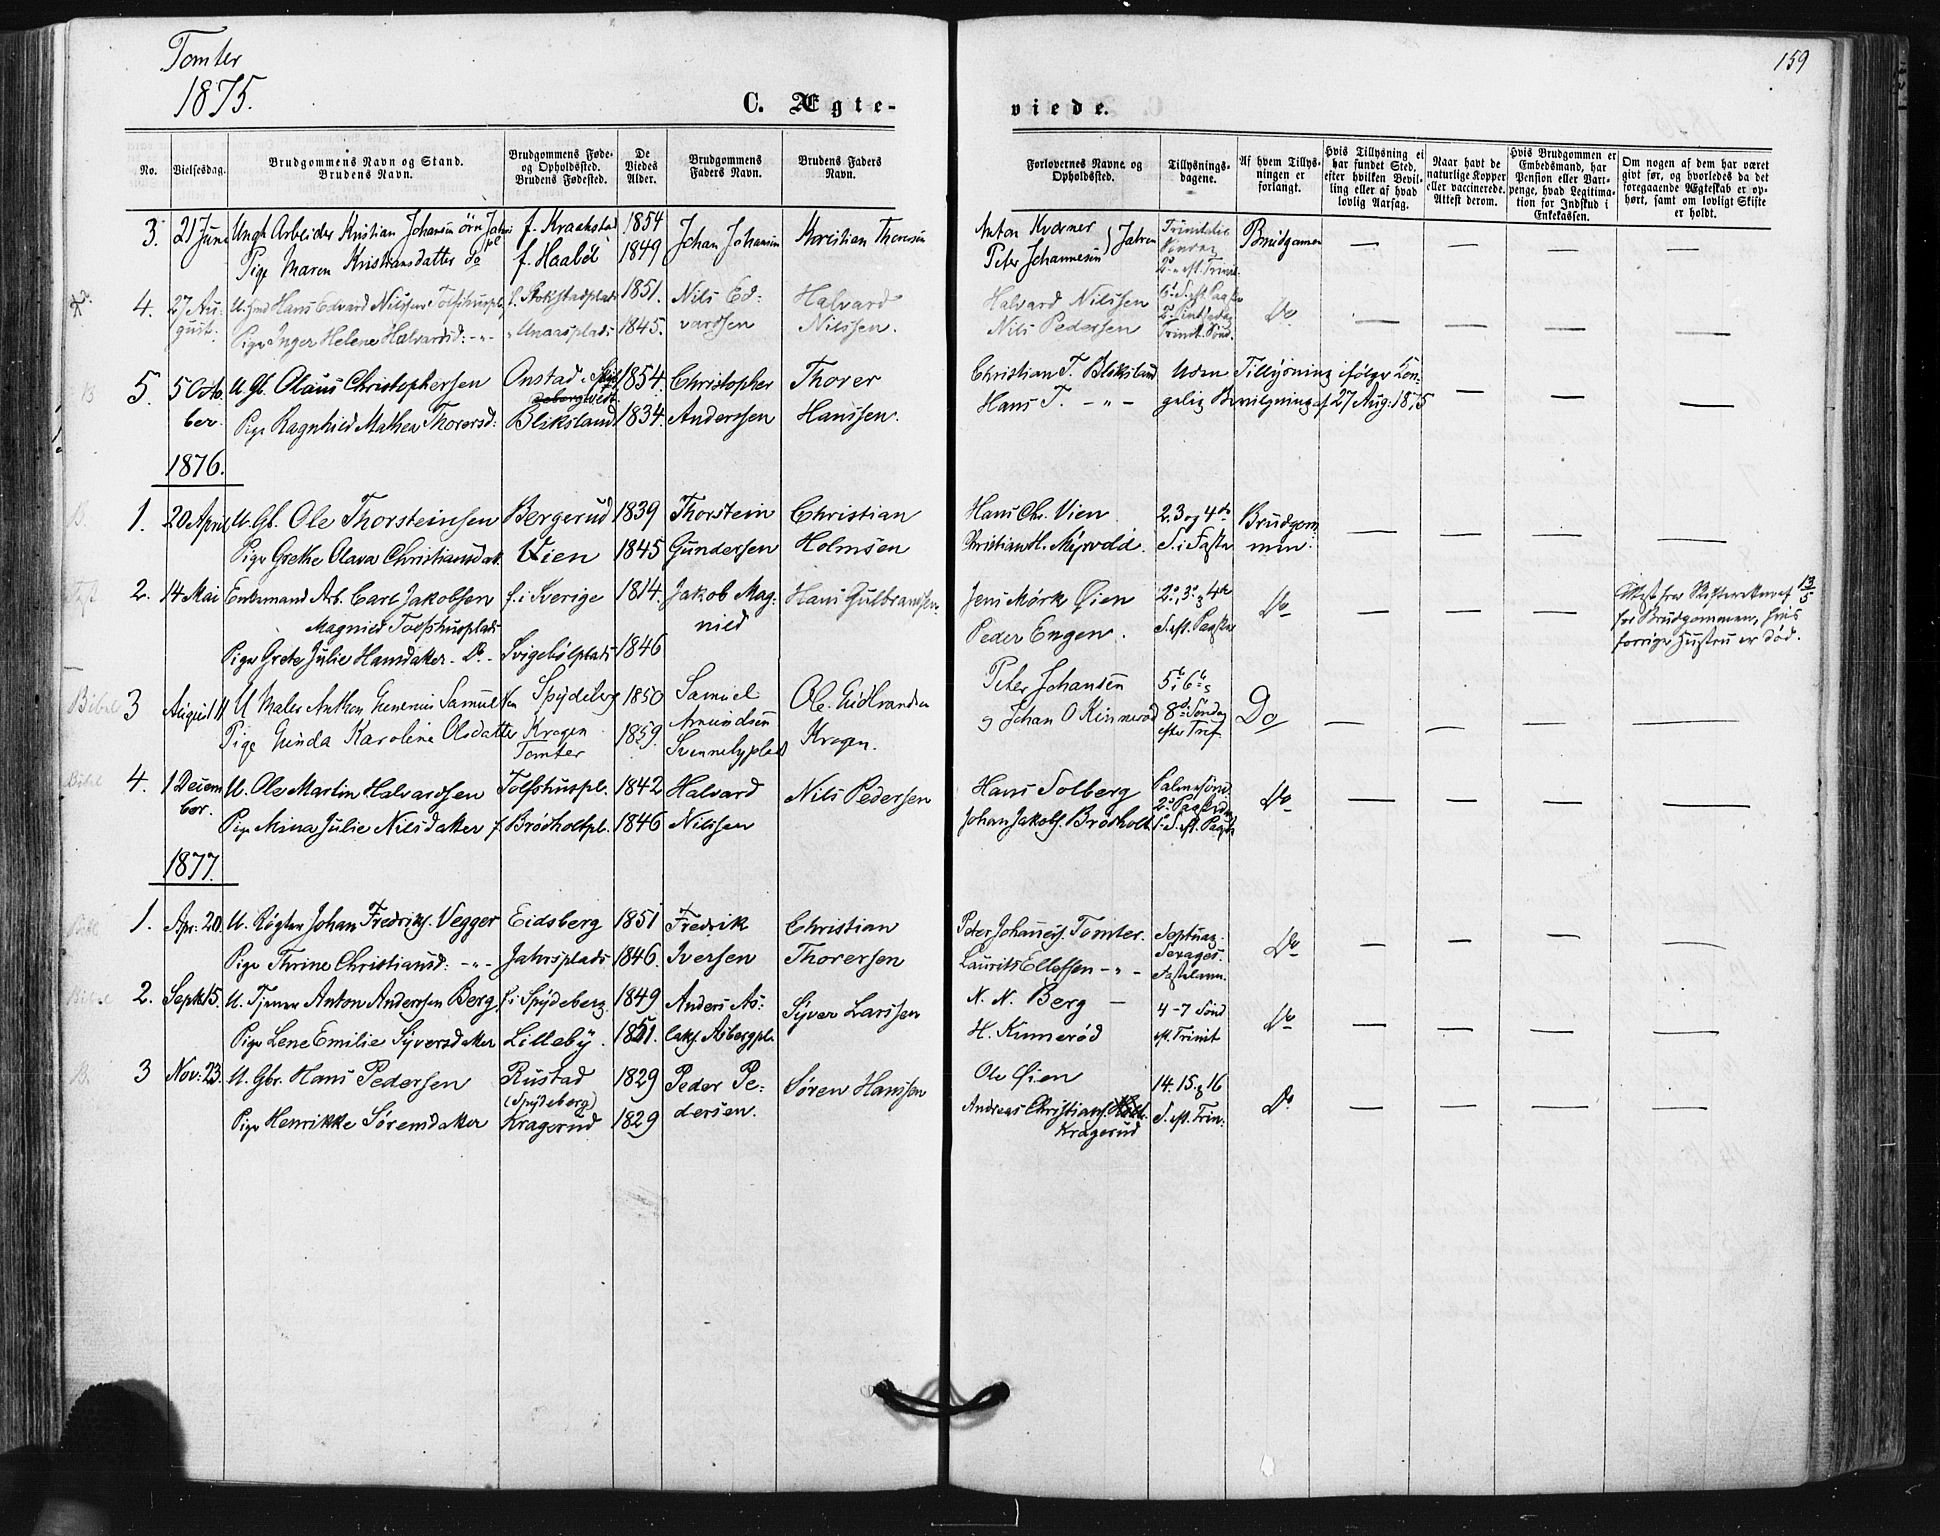 Tomter
1875.
159
C. Ægte-
viede.
No.
Vielsesdag.
Brudgommens Navn og Stand.
Brudens Navn.
Brudgommens Føde-
og Opholdssted.
Brudens Fødested.
De
Viedes
Alder.
Brudgommens
Faders Navn.
Brudens Faders
Navn.
Forlovernes Navne og
Opholdssted.
Tillysnings-
dagene.
Af hvem Tillys-
ningen er
forlangt.
Hvis Tillysning ei
har fundet Sted,
efter hvilken Bevil-
ling eller af hvad
lovlig Aarsag.
Naar havt de
naturlige Kopper
eller vaccinerede.
Attest derom.
Hvis Brudgommen er
Embedsmand, har
Pension eller Vart-
penge, hvad Legitima-
tion for Indskud i
Enkekassen.
Om nogen af dem har været
givt før, og hvorledes da det
foregaaende Ægteskab er op-
hørt, samt om lovligt Skifte
er holdt.
3. 21 Juni Ungk Arbeider Kristian Johansen f. Kraakstad 1854 Johan Johansen Kristian Thoresen Anton Kværner Jahren Brudgomen — — — —
Pige Maren Kristiansdatter do f. Haabøl 1849 Peter Johannesen 2 S. eft. Trinit.
4. 27 Au- U. Hans Edvard Nilssen Tolfshuspl. f. Stokstadplads 1851. Nils Ed- Halvard Halvard Nilssen Do — — — —
gust. Pige Inger Helene Halvardsd: -"- 1845. vardsen Nilssen. Nils Pedersen Trinit. Sønd.
B 5. 5 Octo- U. Gb. Olaus Christophersen Onstad i 1854. Christopher Thorer Christian T. Bliksland Uden Tillysning ifølge Kon-
ber. Pige Ragnhild Mathea Thorersd: Bliksland 1834. Anderssen Hanssen. Hans T. -"- gelig Bevilgning af 27 Aug: 1875 — — —
1876.
B. 1. 20 April U. Gb. Ole Thorsteinsen Bergerud 1839 Thorstein Christian Hans Chr. Vien 2. 3 og 4de Brudgom- — — — —
Pige Grethe Olava Christiansdatt. Vien 1845 Gundersen Holmsen Christian H. Myrvold. S. i Faste men.
2. 14 Mai Enkemand Arb. Carl Jakobsen f. i Sverige 1814. Jakob Mag- Hans Gulbrandsen Jens Mørk Øien 2., 3. & 4de Do — — — Attest fra Skifteretten af 13/5
Magnied Tolfshusplads nied Peder Engen. S. eft. Paaske for Brudgommen, hvis
Pige Grete Julie Hansdatter. Do. Svigebølplads 1846 forrige Hustru er død.
Bibel 3 August 11 U Maler Anthon Samuelsen Spydeberg 1850 Samuel Ole Gulbrandsen Peter Johansen 5. 6. & Do — — — —
Pige Gunda Karoline Olsdatter Kragen 1859. Amundsen Kragen. & Johan O Kinnerød 8de Søndag
Tomter Svennebyplads efter Tref.
Bibel 4. 1 Decem- U. Ole Martin Halvardsen Tolfshuspl. 1842 Halvard Nils Pedersen Hans Solberg Palmesønd. Do — — — —
ber. Pige Mina Julie Nilsdatter f. Brødholtpl. 1846 Nilssen Johan Jakobs. Brødholt 1. S. eft. Paaske
1877.
Bibel 1. Apr: 20. U. Røgter Johan Fredriks. Vegger Eidsberg 1851 Fredrik Christian Peter Johannes. Tomter. Septuag. Do — — — —
Pige Thrine Christiansd: -"- Jahrsplads 1846. Iversen Thorersen Laurits Ellefsen -"- Sexages. Fastelavn.
Bibel 2. Sept: 15. U. Tjener Anton Anderssen Berg f. i Spydeberg 1849 Anders As- Syver Larssen N. N. Berg — 4-7 Sønd Do — — — —
Pige Lene Emilie Syversdatter Lilleby. 1851. laks. Asbergpl. H. Kinnerød eft. Trinit
B. 3 Nov: 23. U. Gbr. Hans Pedersen Rustad 1829 Peder Pe- Søren Hanssen Ole Øien 14. 15. & 16 Do — — — —
(Spydeberg)
Pige Henrikke Sørensdatter Kragerud 1829 dersen. Andreas Christians. S. eft. Trin.
Kragerud